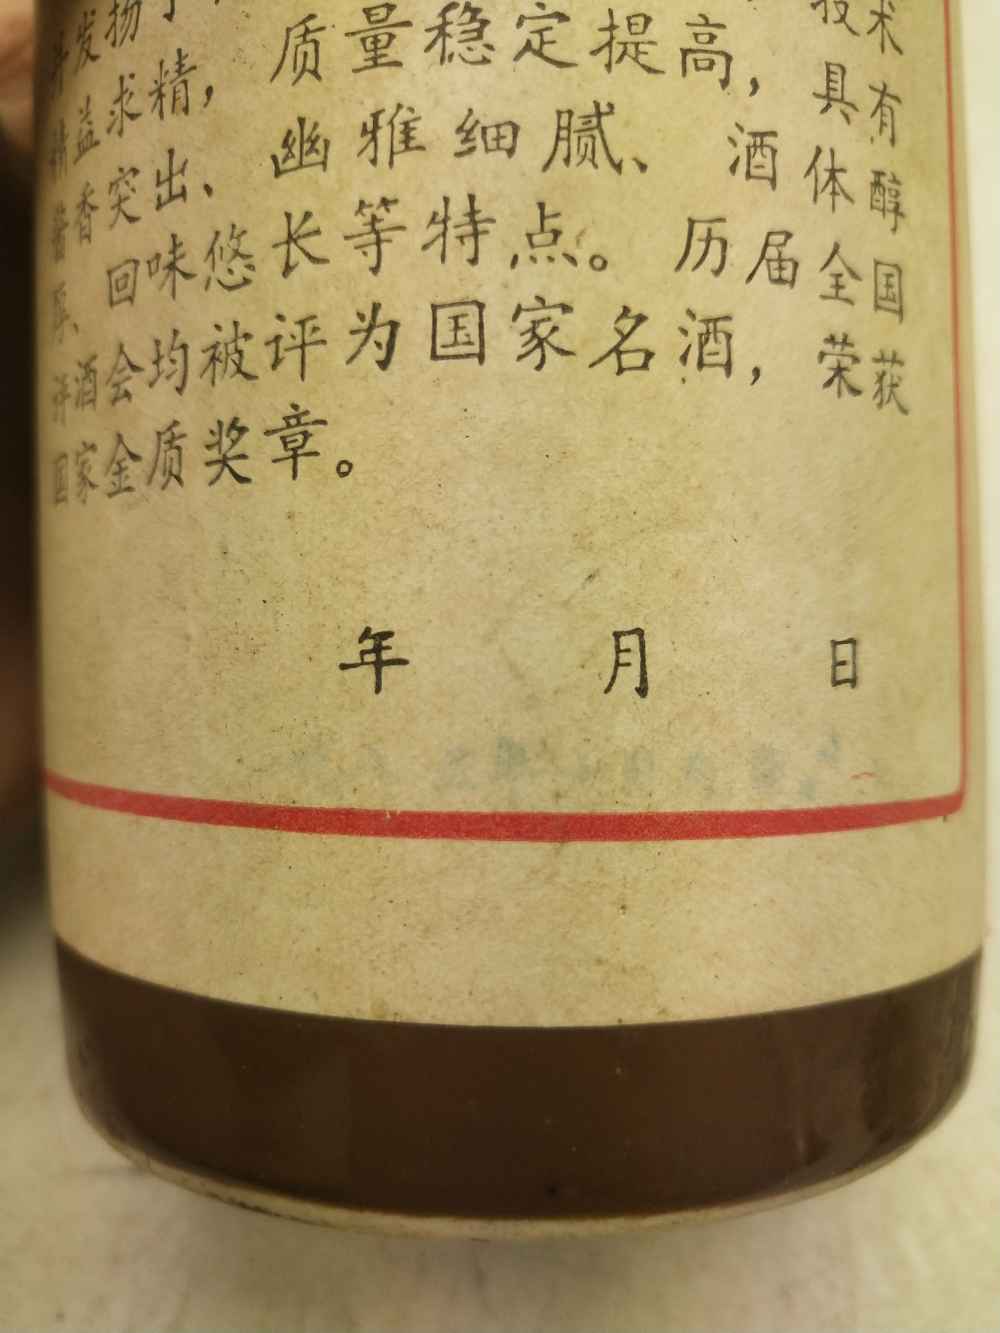 并发扬 技术
精益求精，质量稳定提高，具有
酱香突出、幽雅细腻、酒体醇
厚、回味悠长等特点。历届全国
评酒会均被评为国家名酒，荣获
国家金质奖章。
年 月 日